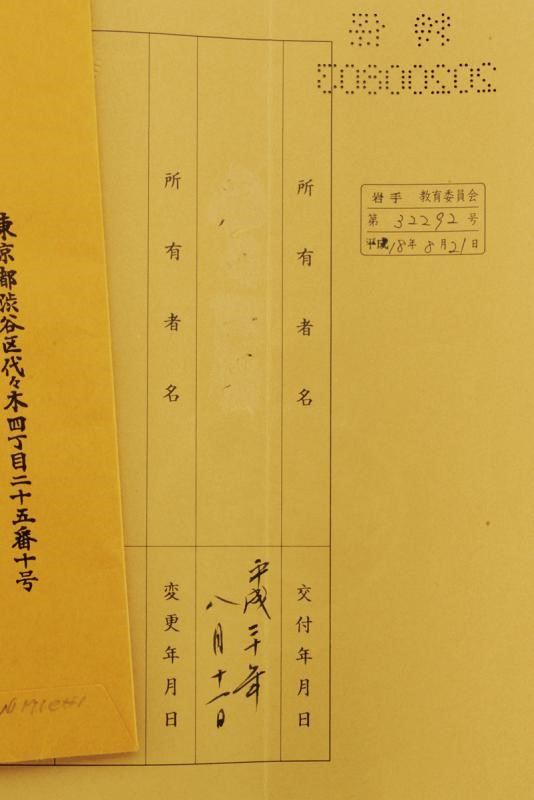 岩手 教育委員会
第 32292 号
平成18年8月21日
所有者名
交付年月日
平成
八月十一日
所有者名
変更年月日
東京都渋谷区代々木四丁目二十五番十号